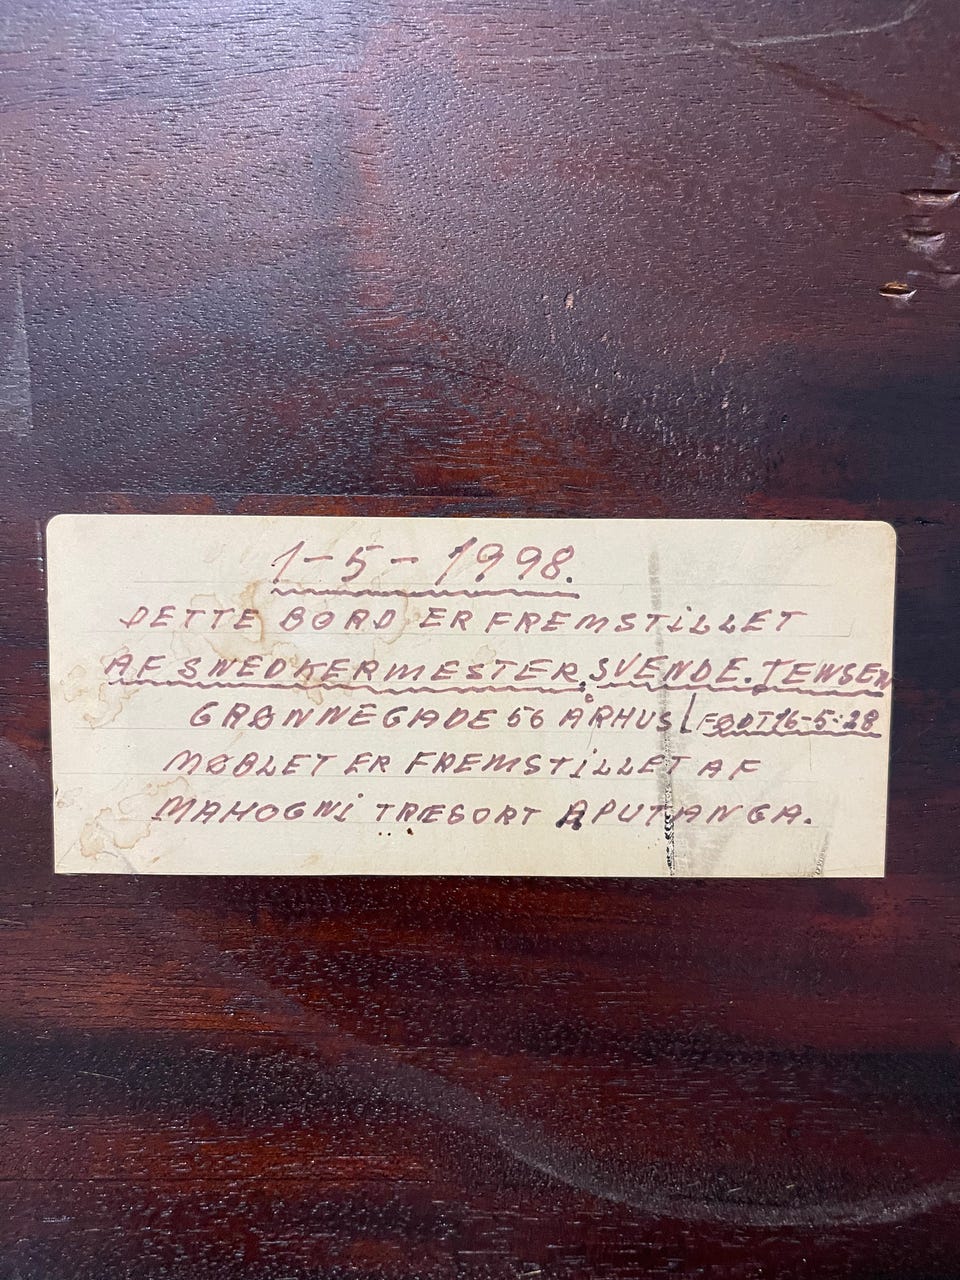 1-5-1998.
DETTE BORD ER FREMSTiLLET
AF SNEDKERMESTER, SVEND E. JENSEN
GRØNNEGADE 56 ÅRHUS (FØDT 16-5-28
MØBLET ER FREMSTiLLET AF
MAHOGNi TRESORT APUTIANGA.